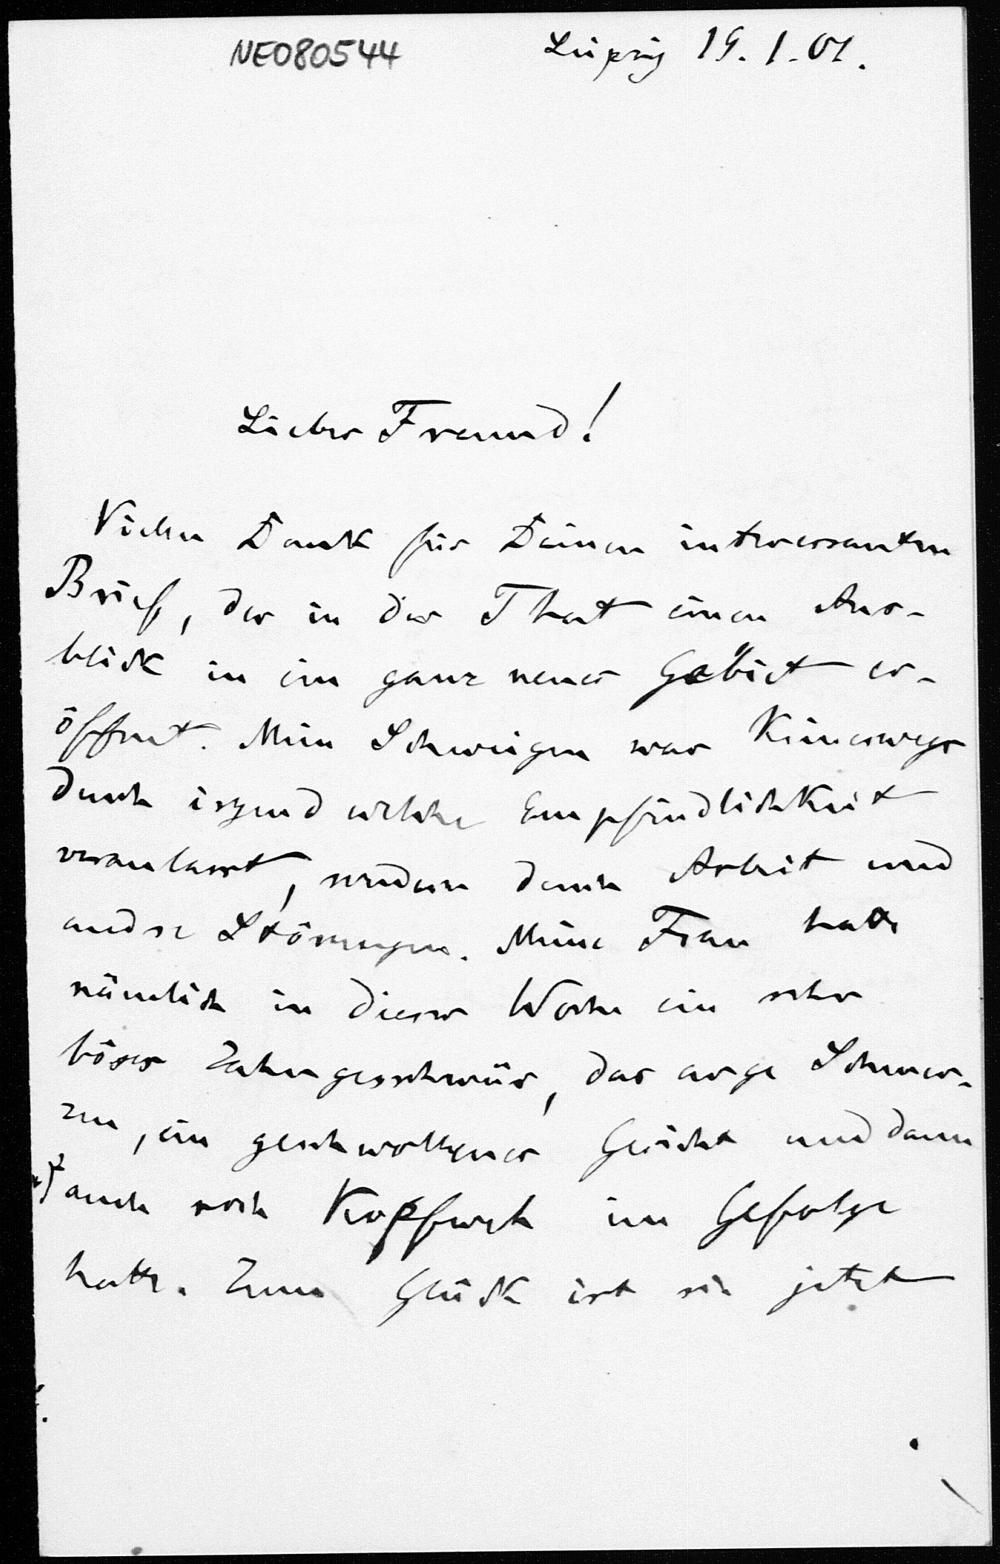 NE080544
Leipzig 19. 1. 01.
Lieber Freund!
Vielen Dank für Deinen interessanten
Brief, der in der That einen Aus-
blick in ein ganz neues Gebiet er-
öffnet. Mein Schweigen war Keineswegs
durch irgend welche Empfindlichkeit
veranlasst, sondern durch Arbeit und
andre Störungen. Meine Frau hatte
nämlich in dieser Woche ein sehr
böses Zahngeschwür, das arge Schmer-
zen, ein geschwollenes Gesicht und dann
auch noch Kopfweh im Gefolge
hatte. Zum Glück ist sie jetzt